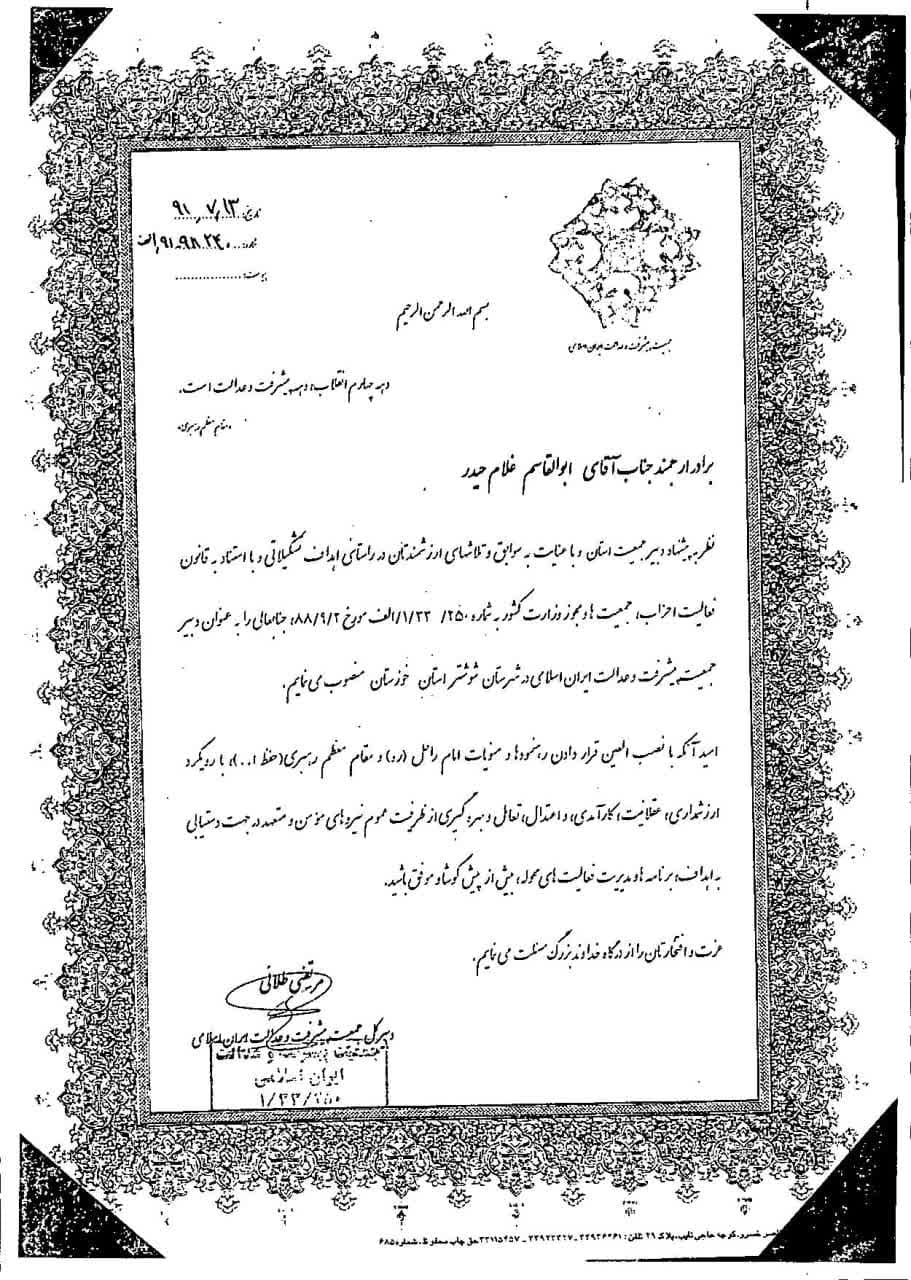 تاریخ: ۹۱٫۷٫۱۳
شماره: ۹۱٫۹۸٫۲۴۰٫الف
پیوست: ..................
جمعیت پیشرفت و عدالت ایران اسلامی
بسم الله الرحمن الرحیم
دهه چهارم انقلاب، دهه پیشرفت و عدالت است.
«مقام معظم رهبری»
برادر ارجمند جناب آقای ابوالقاسم غلام حیدر
نظر به پیشنهاد دبیر جمعیت استان و با عنایت به سوابق و تلاشهای ارزشمندتان در راستای اهداف تشکیلاتی و با استناد به قانون
فعالیت احزاب، جمعیت ها و مجوز وزارت کشور به شماره ۲۵۰/ ۱/۳۳/الف مورخ ۸۸/۹/۲، جنابعالی را به عنوان دبیر
جمعیت پیشرفت و عدالت ایران اسلامی در شهرستان شوشتر استان خوزستان منصوب می نمایم.
امید آنکه با نصب العین قرار دادن رهنمودها و منویات امام راحل (ره) و مقام معظم رهبری (حفظ ا...)، با رویکرد
ارزشمداری، عقلانیت، کارآمدی، و اعتدال، تعامل و بهره گیری از ظرفیت عموم نیروهای مؤمن و متعهد در جهت دستیابی
به اهداف، برنامه ها و مدیریت فعالیت های محوله، بیش از پیش کوشا و موفق باشید.
عزت و افتخارتان را از درگاه خداوند بزرگ مسئلت می نمایم.
مرتضی طلائی
دبیر کل جمعیت پیشرفت و عدالت ایران اسلامی
جمعیت پیشرفت و عدالت
ایران اسلامی
۱/۳۳/۲۵۰
خسرو، کوچه حاجی نایب، پلاک ۲۹ تلفن: ۳۳۹۳۶۲۶۱ - ۳۳۹۲۳۳۲۷ - ۳۳۱۱۵۴۵۷ حق چاپ محفوظ، شماره ۶۸۵